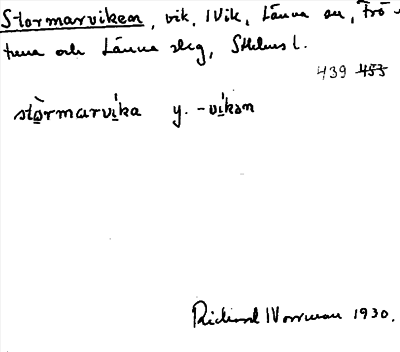 Stormarviken, vik, i Vik, Länna sn, Frö-
tuna och Länna slg, Sthlms l.
439 453
stòrmarvíka y. -víkən
Richard Norrman 1930.